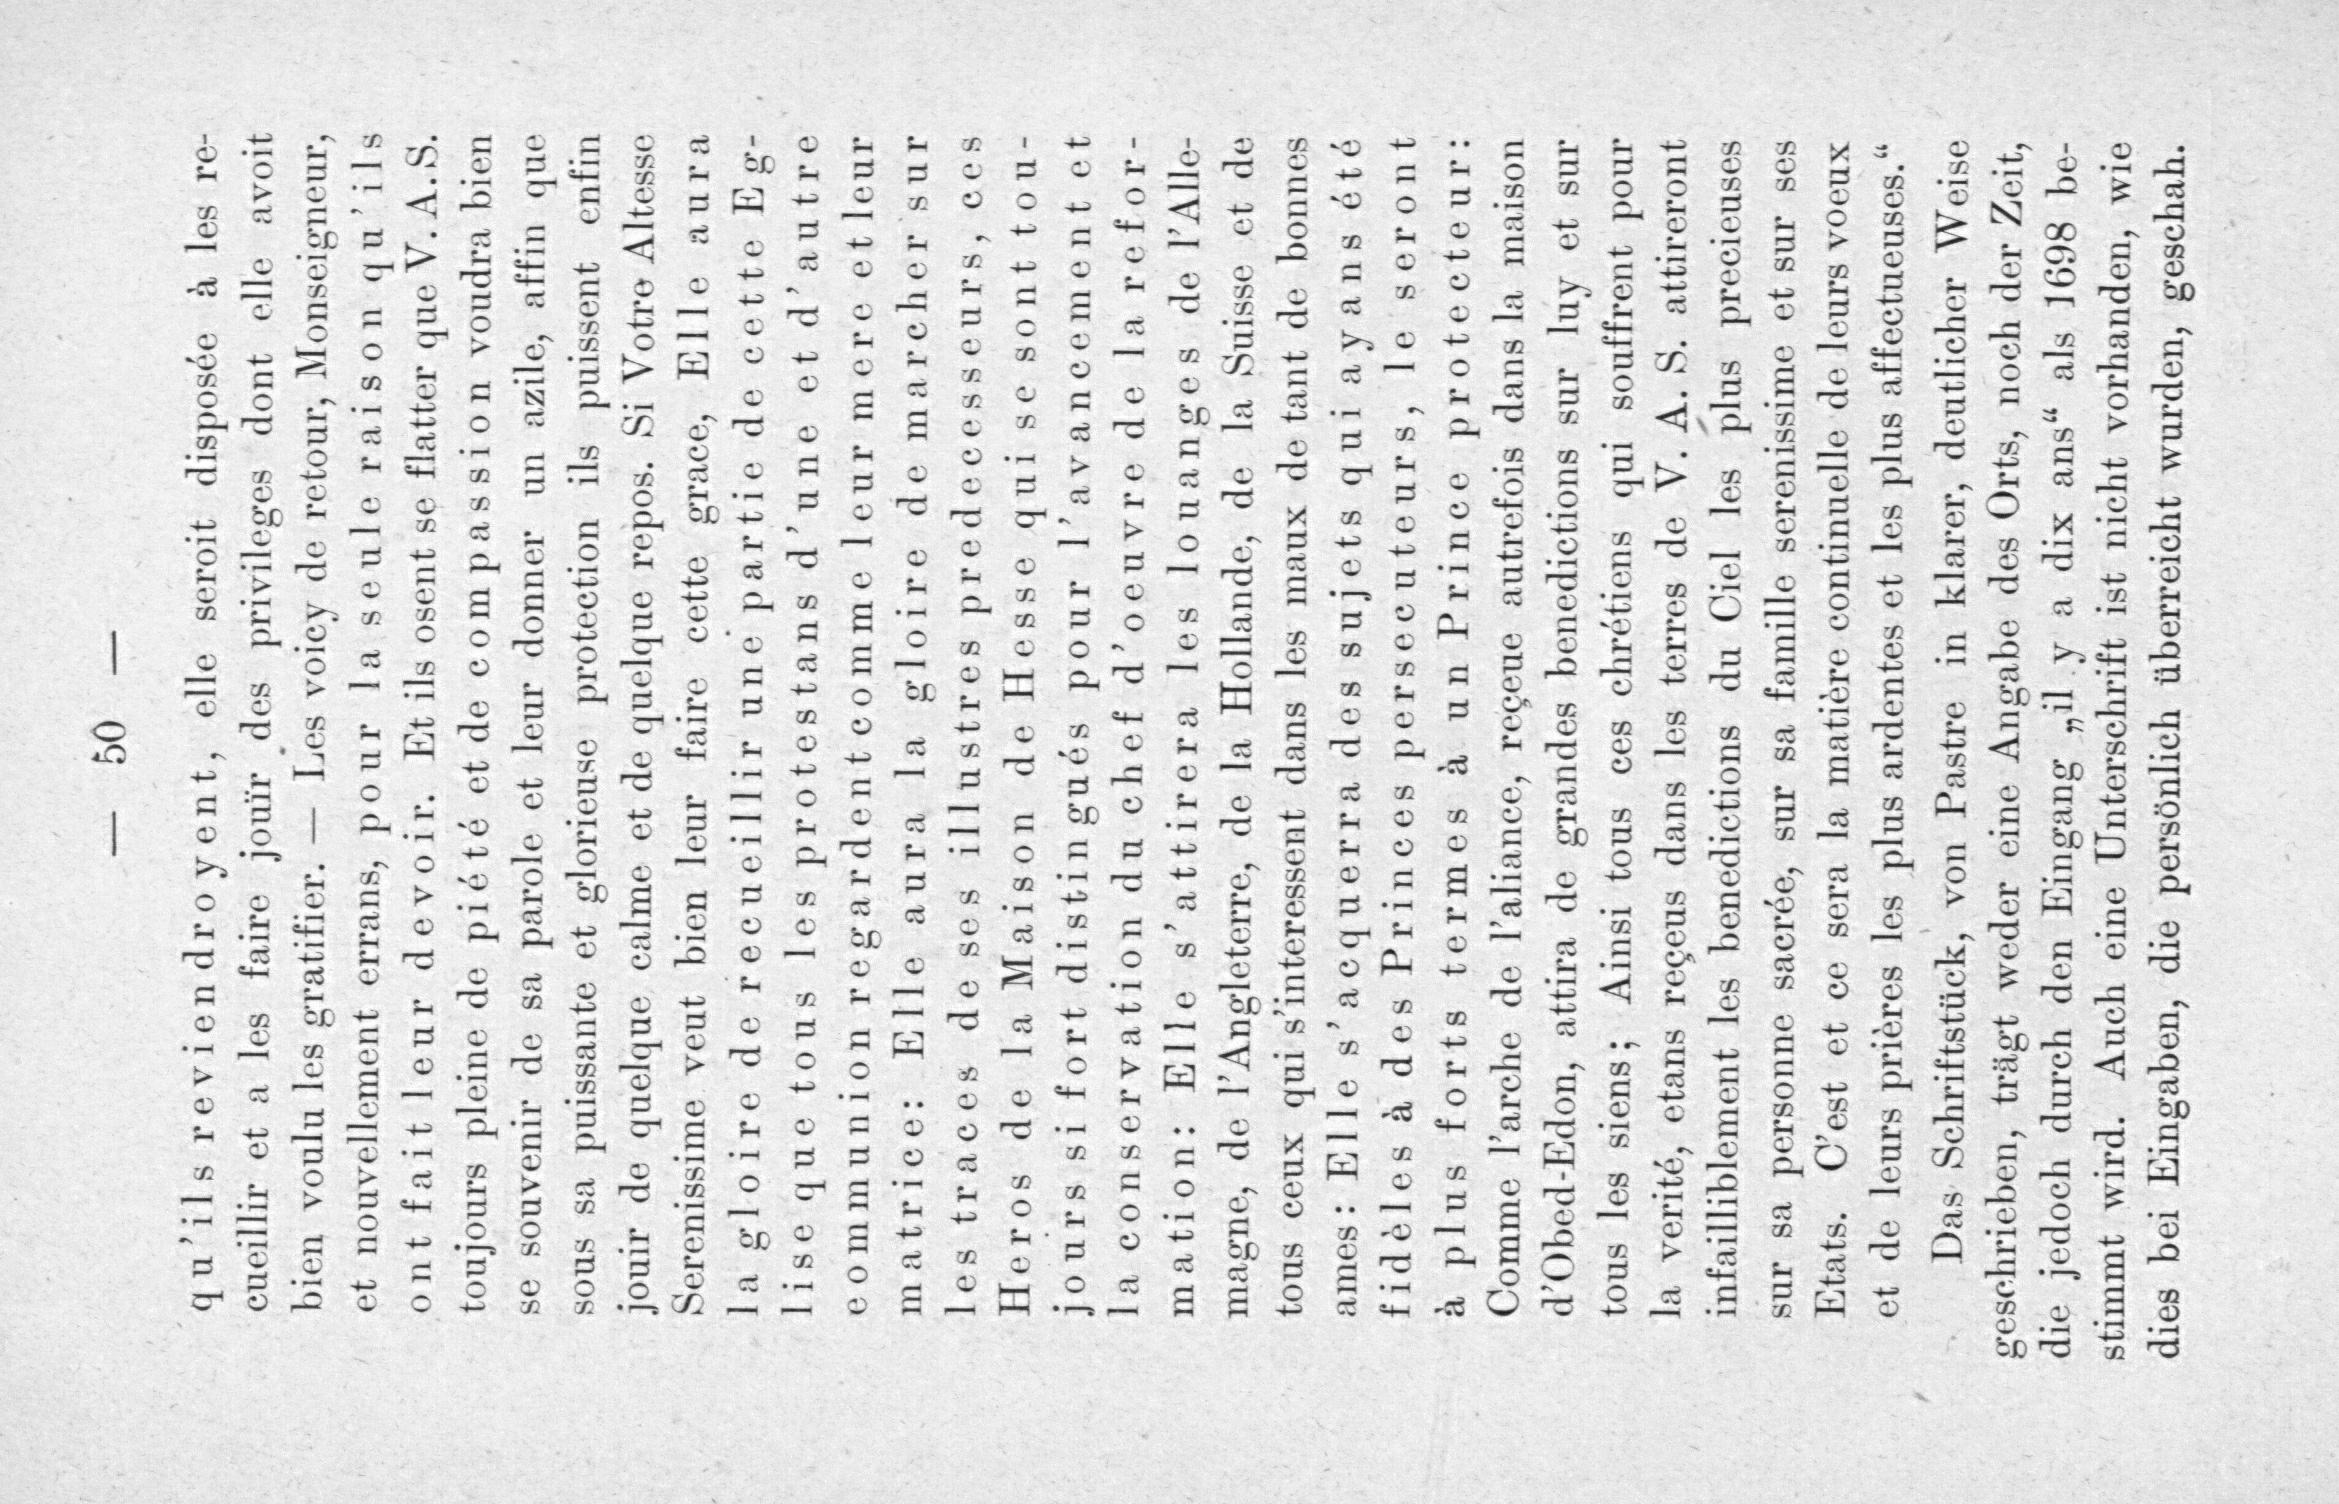 — 50 —
qu'ils reviendroyent, elle seroit disposée à les re-
cueillir et a les faire jouïr des privileges dont elle avoit
bien voulu les gratifier. — Les voicy de retour, Monseigneur,
et nouvellement errans, pour la seule raison qu'ils
ont fait leur devoir. Et ils osent se flatter que V. A. S.
toujours pleine de piété et de compassion voudra bien
se souvenir de sa parole et leur donner un azile, affin que
sous sa puissante et glorieuse protection ils puissent enfin
jouir de quelque calme et de quelque repos. Si Votre Altesse
Serenissime veut bien leur faire cette grace, Elle aura
la gloire de recueillir une partie de cette Eg-
lise que tous les protestans d'une et d'autre
communion regardent comme leur mere et leur
matrice: Elle aura la gloire de marcher sur
les traces de ses illustres predecesseurs, ces
Heros de la Maison de Hesse qui se sont tou-
jours si fort distingués pour l'avancement et
la conservation du chef d'oeuvre de la refor-
mation: Elle s'attirera les louanges de l'Alle-
magne, de l'Angleterre, de la Hollande, de la Suisse et de
tous ceux qui s'interessent dans les maux de tant de bonnes
ames: Elle s'acquerra des sujets qui ayans été
fidèles à des Princes persecuteurs, le seront
à plus forts termes à un Prince protecteur:
Comme l'arche de l'aliance, reçeue autrefois dans la maison
d'Obed-Edon, attira de grandes benedictions sur luy et sur
tous les siens; Ainsi tous ces chrétiens qui souffrent pour
la verité, etans reçeus dans les terres de V. A. S. attireront
infailliblement les benedictions du Ciel les plus precieuses
sur sa personne sacrée, sur sa famille serenissime et sur ses
Etats. C'est et ce sera la matière continuelle de leurs voeux
et de leurs prières les plus ardentes et les plus affectueuses.“
Das Schriftstück, von Pastre in klarer, deutlicher Weise
geschrieben, trägt weder eine Angabe des Orts, noch der Zeit,
die jedoch durch den Eingang „il y a dix ans“ als 1698 be-
stimmt wird. Auch eine Unterschrift ist nicht vorhanden, wie
dies bei Eingaben, die persönlich überreicht wurden, geschah.